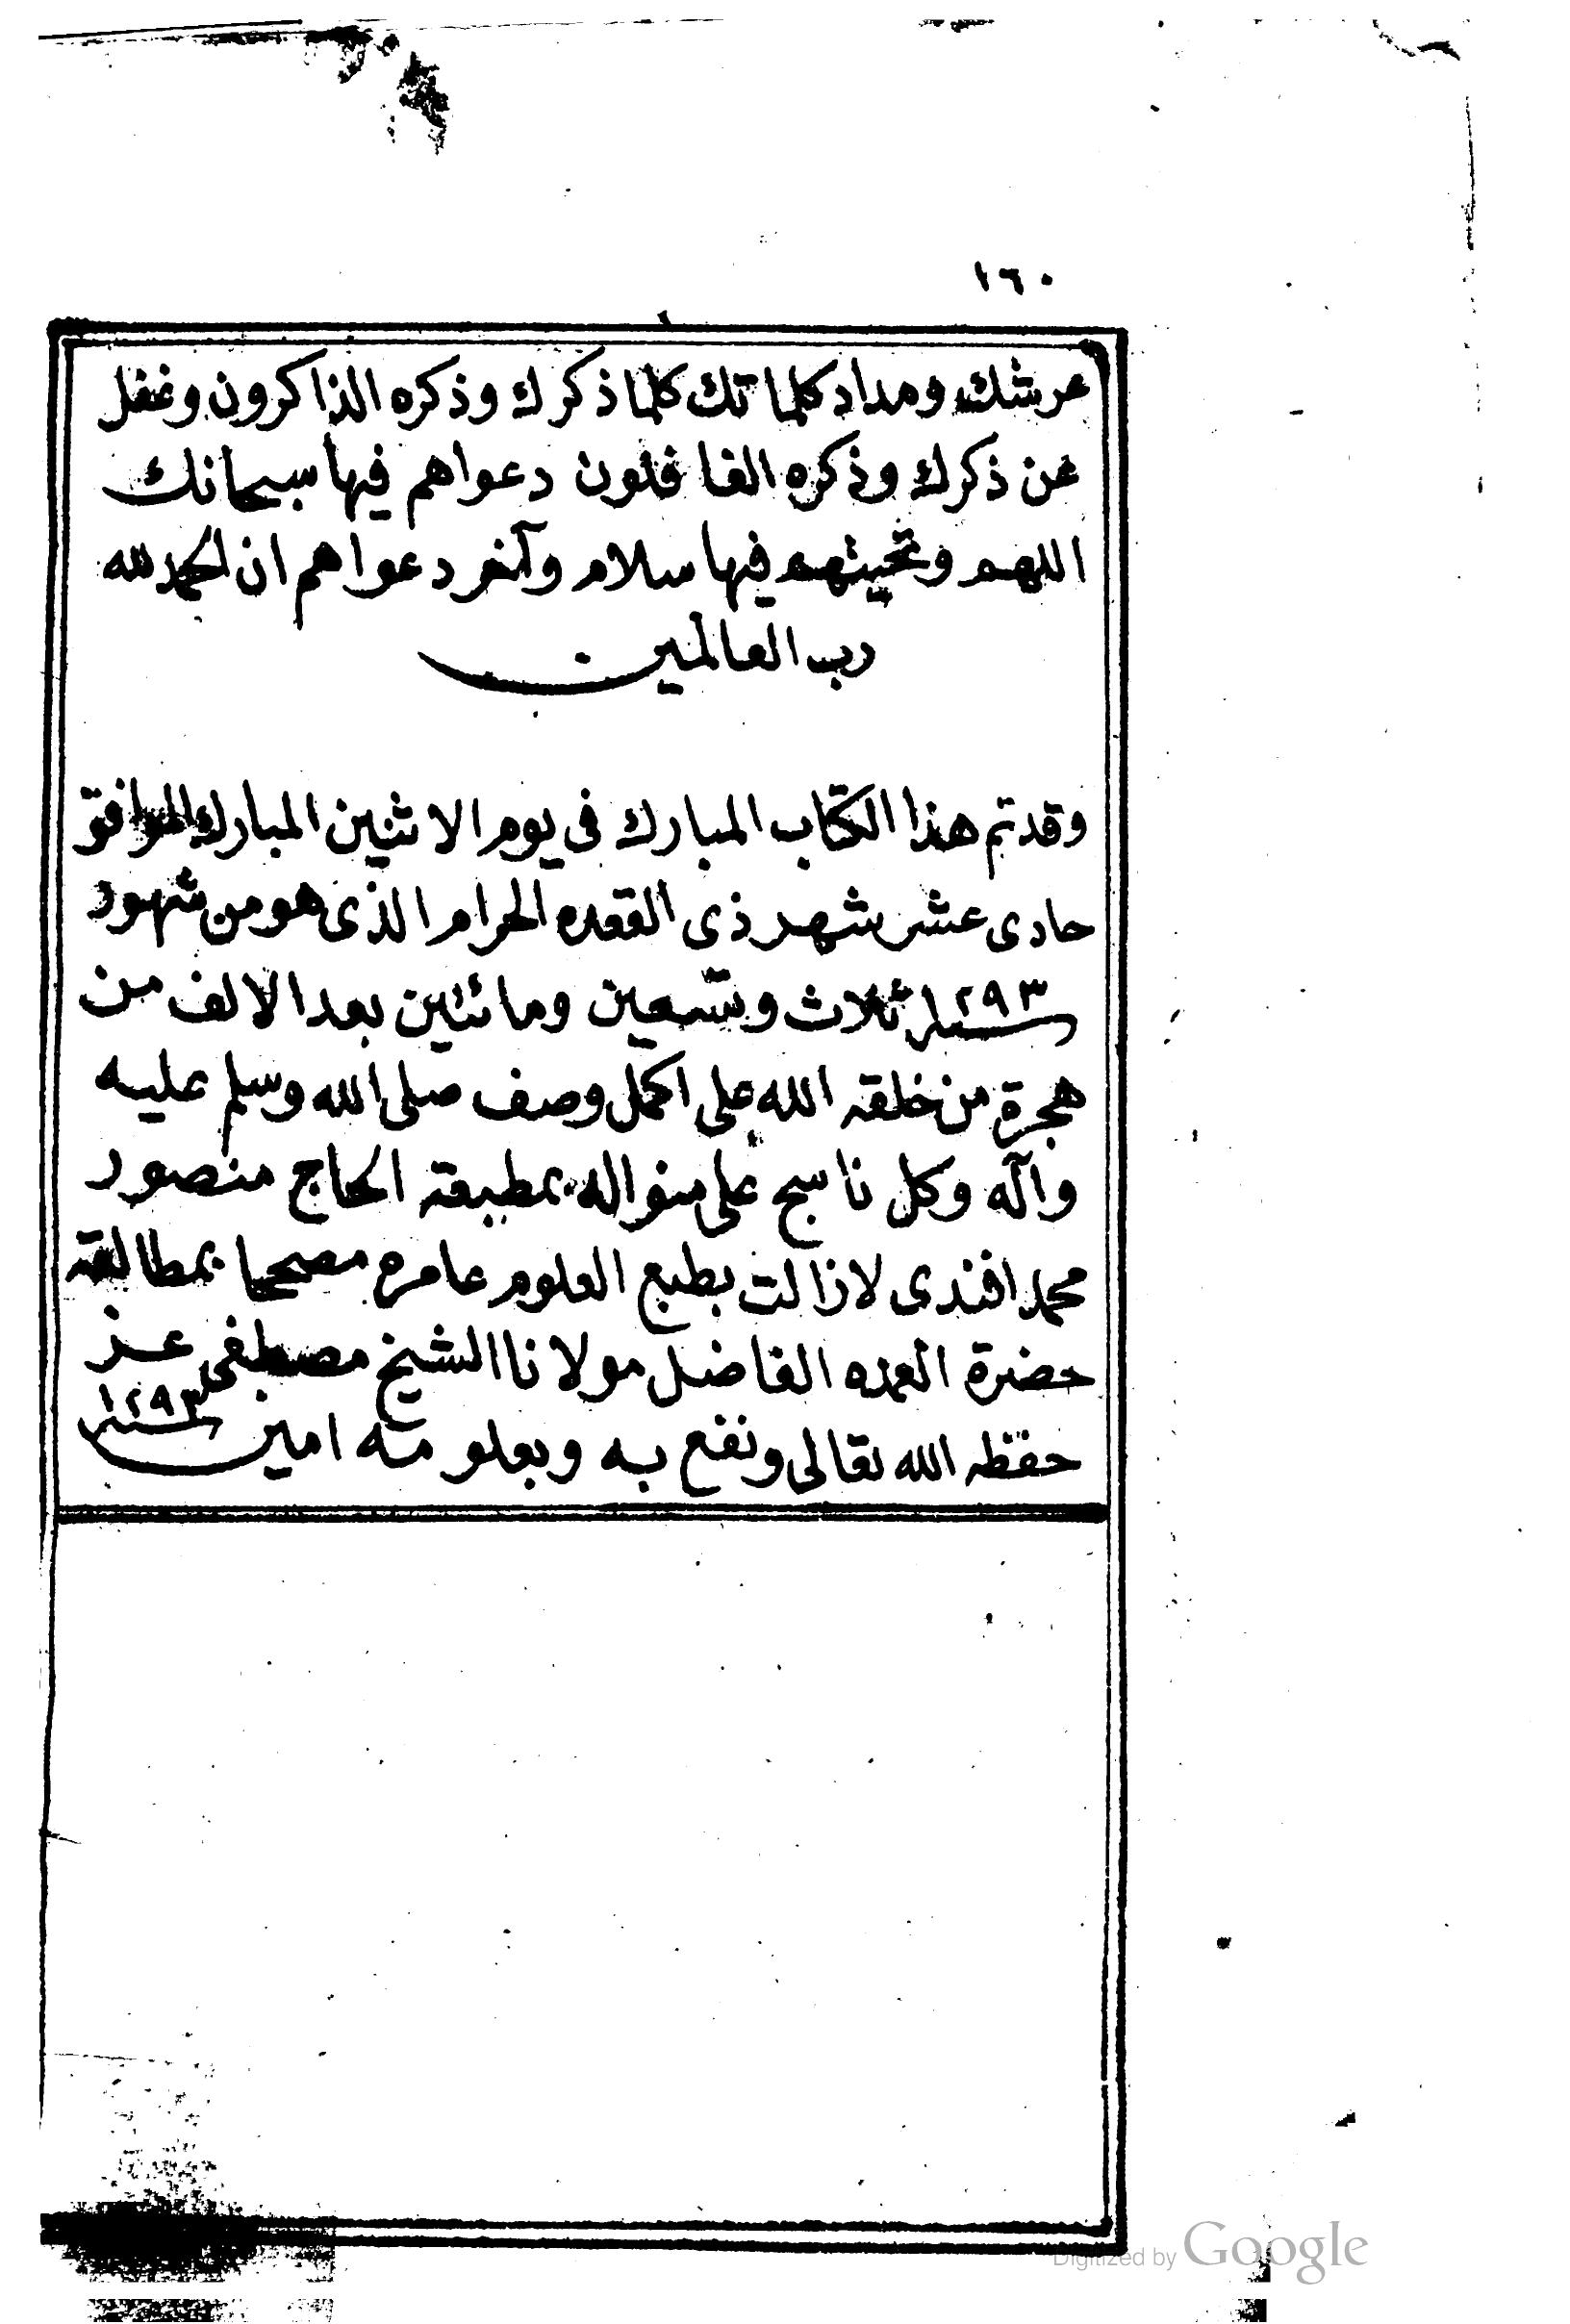 ١٦٠
عرشك ومداد كلماتك كلما ذكرك وذكره الذاكرون وغفل
عن ذكرك وذكره الغافلون دعواهم فيها سبحانك
اللهم وتحيتهم فيها سلام وآخر دعواهم ان الحمد لله
رب العالمين
وقد تم هذا الكتاب المبارك فى يوم الاثنين المبارك الموافق
حادى عشر شهر ذى القعده الحرام الذى هو من شهور
سنة ١٢٩٣ ثلاث وتسعين ومائتين بعد الالف من
هجرة من خلقه الله على اكمل وصف صلى الله وسلم عليه
وآله وكل ناسج على منواله بمطبعة الحاج منصور
محمد افندى لازالت بطبع العلوم عامره مصححا بمطالعة
حضرة العمده الفاضل مولانا الشيخ مصطفى عز
حفظه الله تعالى ونفع به وبعلومه امين سنة ١٢٩٣
Digitized by Google